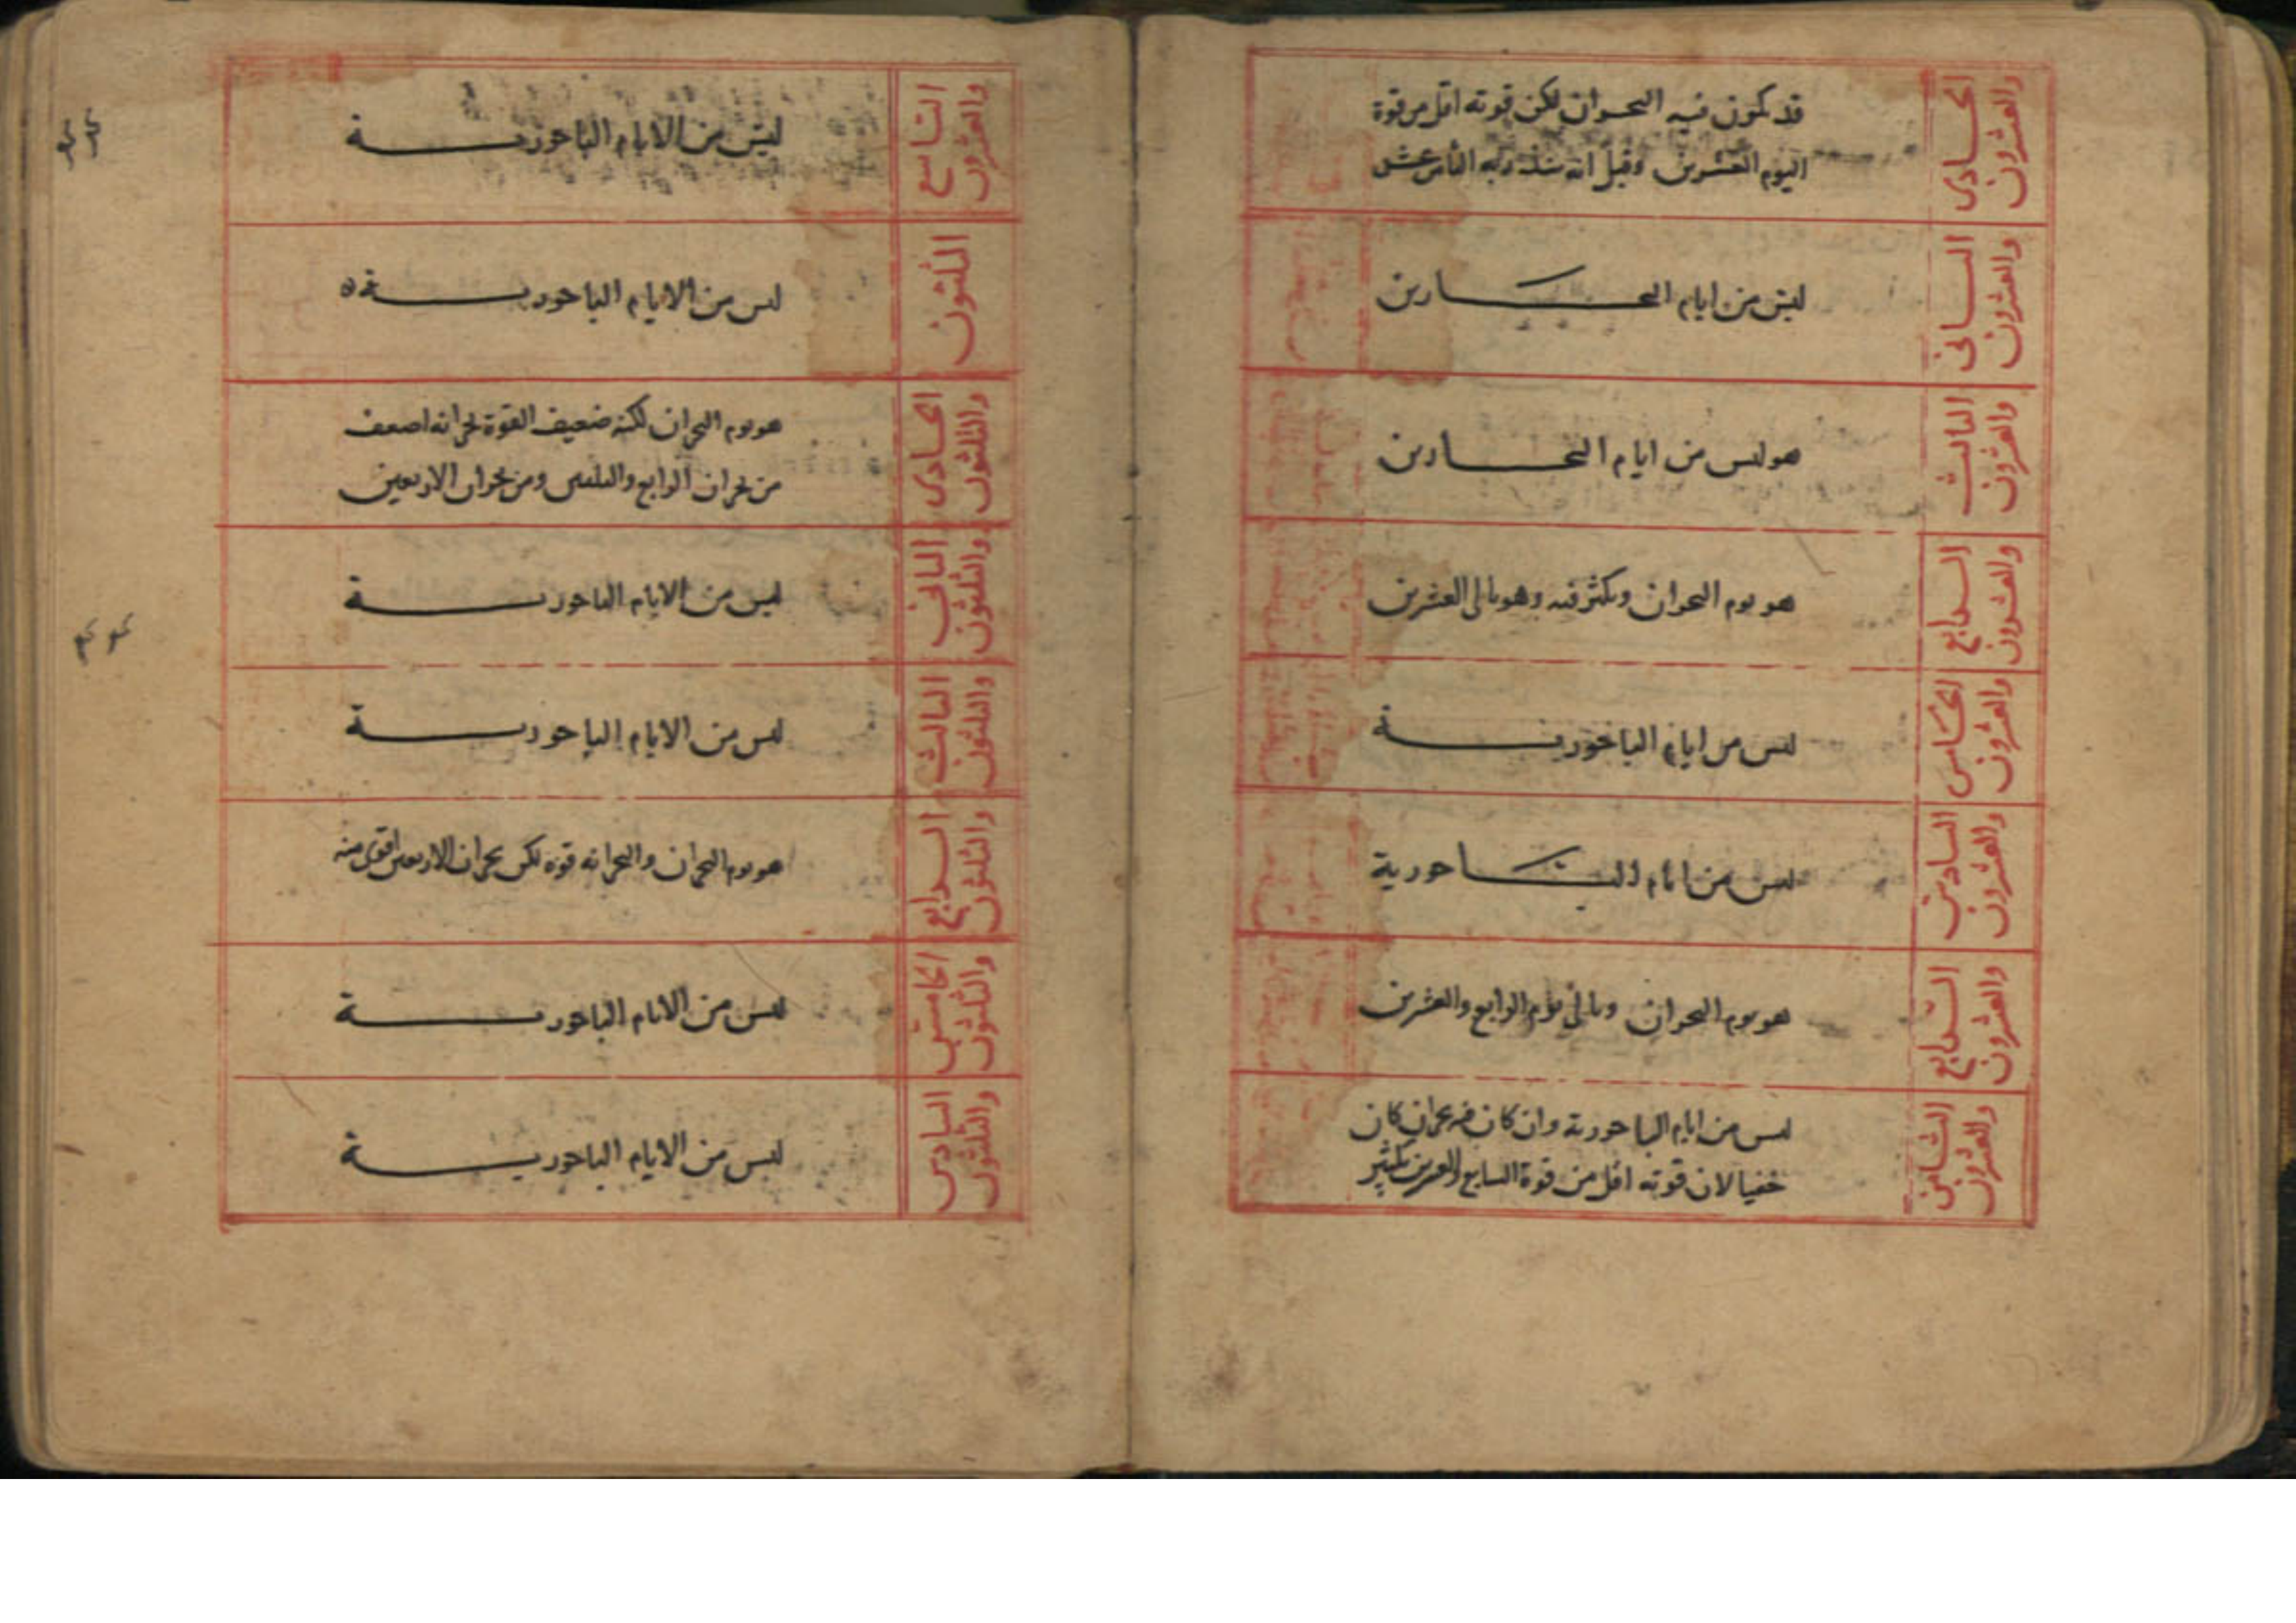 الحادى
والعشرون
قد يكون فيه البحران لكن قوته اقل من قوة
اليوم العشرين وقيل انه ينذر به الثامن عشر
الثانى
والعشرون
ليس من ايام البحارين
الثالث
والعشرون
هو ليس من ايام البحارين
الرابع
والعشرون
هو يوم البحران ويكثر فيه وهو تالى العشرين
الخامس
والعشرون
ليس من ايام الباحورية
السادس
والعشرون
ليس من ايام الباحورية
السابع
والعشرون
هو يوم البحران وتالى يوم الرابع والعشرين
الثامن
والعشرون
ليس من ايام الباحورية وان كان فيه بحران كان
خفيا لان قوته اقل من قوة السابع والعشرين بكثير
التاسع
والعشرون
ليس من الايام الباحورية
الثلثون
ليس من الايام الباحورية
الحادى
والثلثون
هو يوم البحران لكنه ضعيف القوة بحرانه اضعف
من بحران الرابع والثلثين ومن بحران الاربعين
الثانى
والثلثون
ليس من الايام الباحورية
الثالث
والثلثون
ليس من الايام الباحورية
الرابع
والثلثون
هو يوم البحران والبحرانه قوة لكن بحران الاربعين اقوى منه
الخامس
والثلثون
ليس من الايام الباحورية
السادس
والثلثون
ليس من الايام الباحورية